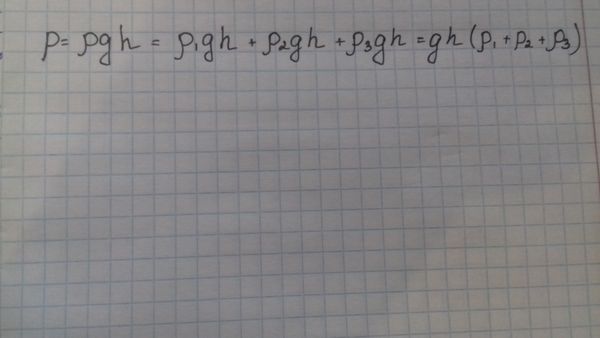 p = ρgh = ρ₁gh + ρ₂gh + ρ₃gh = gh(ρ₁ + ρ₂ + ρ₃)